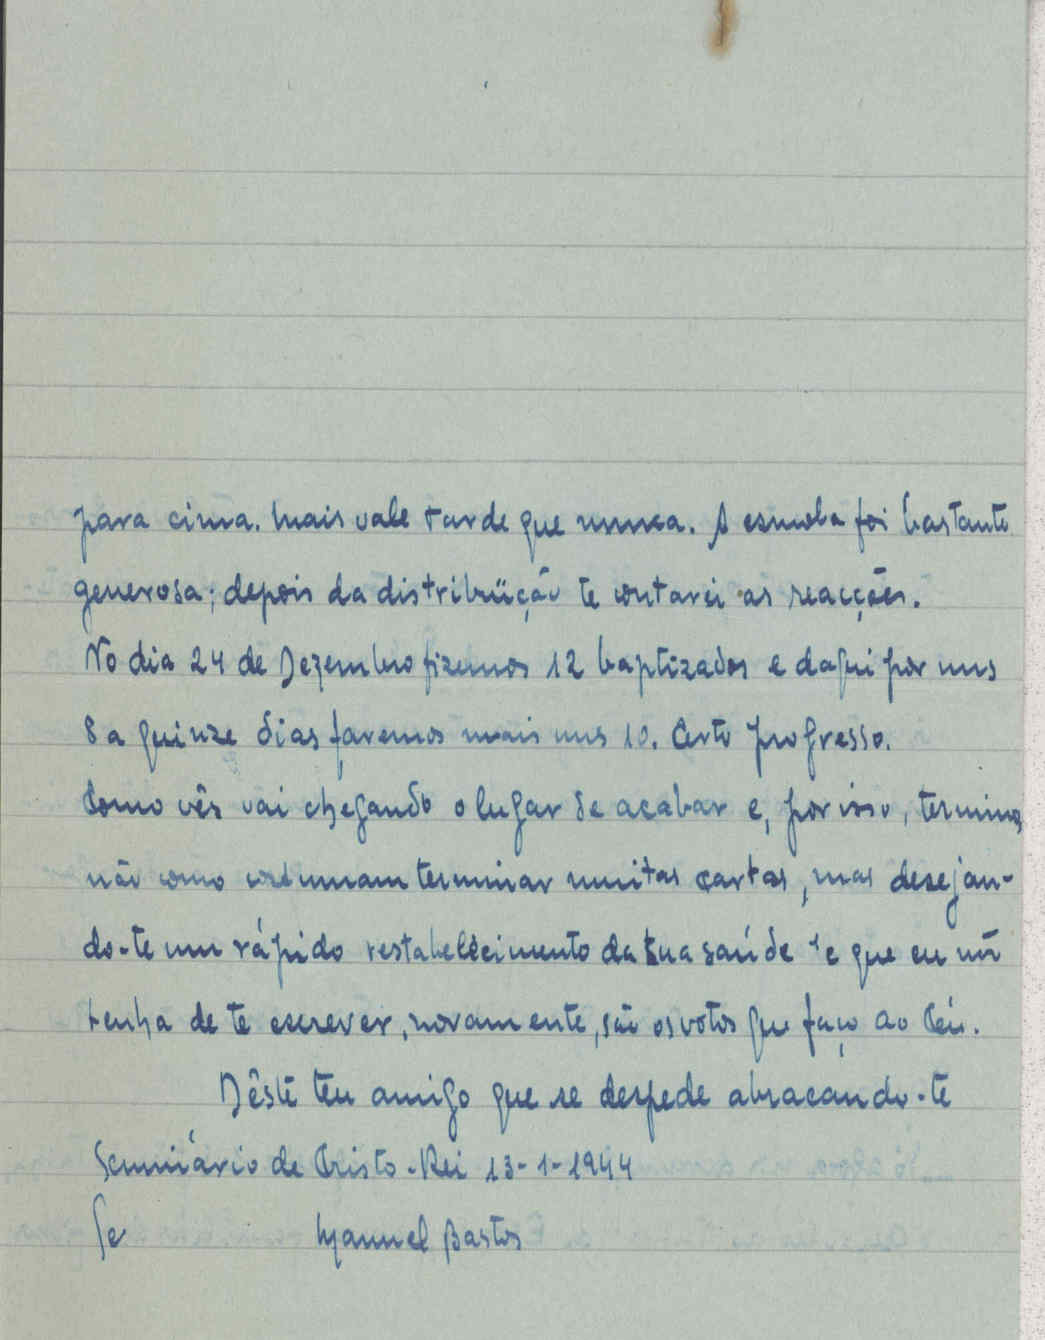 para cima. Mais vale tarde que nunca. A esmola foi bastante
generosa; depois da distribüição te contarei as reacções.
No dia 24 de Dezembro fizemos 12 baptizados e daqui por uns
8 a quinze dias faremos mais uns 10. Certo progresso.
Como vês vai chegando o lugar de acabar e, por isso, termino
não como costumam terminar muitas cartas, mas desejan-
do-te um rápido restabelecimento da tua saúde e que eu não
tenha de te escrever, novamente, são os votos que faço ao Céu.
Dêste teu amigo que se despede abraçando-te
Seminário de Cristo-Rei 13-1-1944
Manuel Bastos